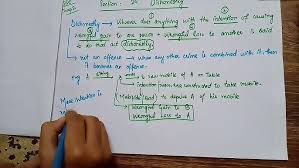 Section : 24 Dishonestly
Dishonestly → Whoever does anything with the intention of causing
wrongful gain to one person + wrongful loss to another is said
to do that act dishonestly
→ not an offence → when any other crime is combined with it, then
becomes an offence.
eg → stealing → B saw mobile of A on Table
Intention
Mobile to deprive A of his mobile
Wrongful Gain to B
Wrongful Loss to A
Mere intention is